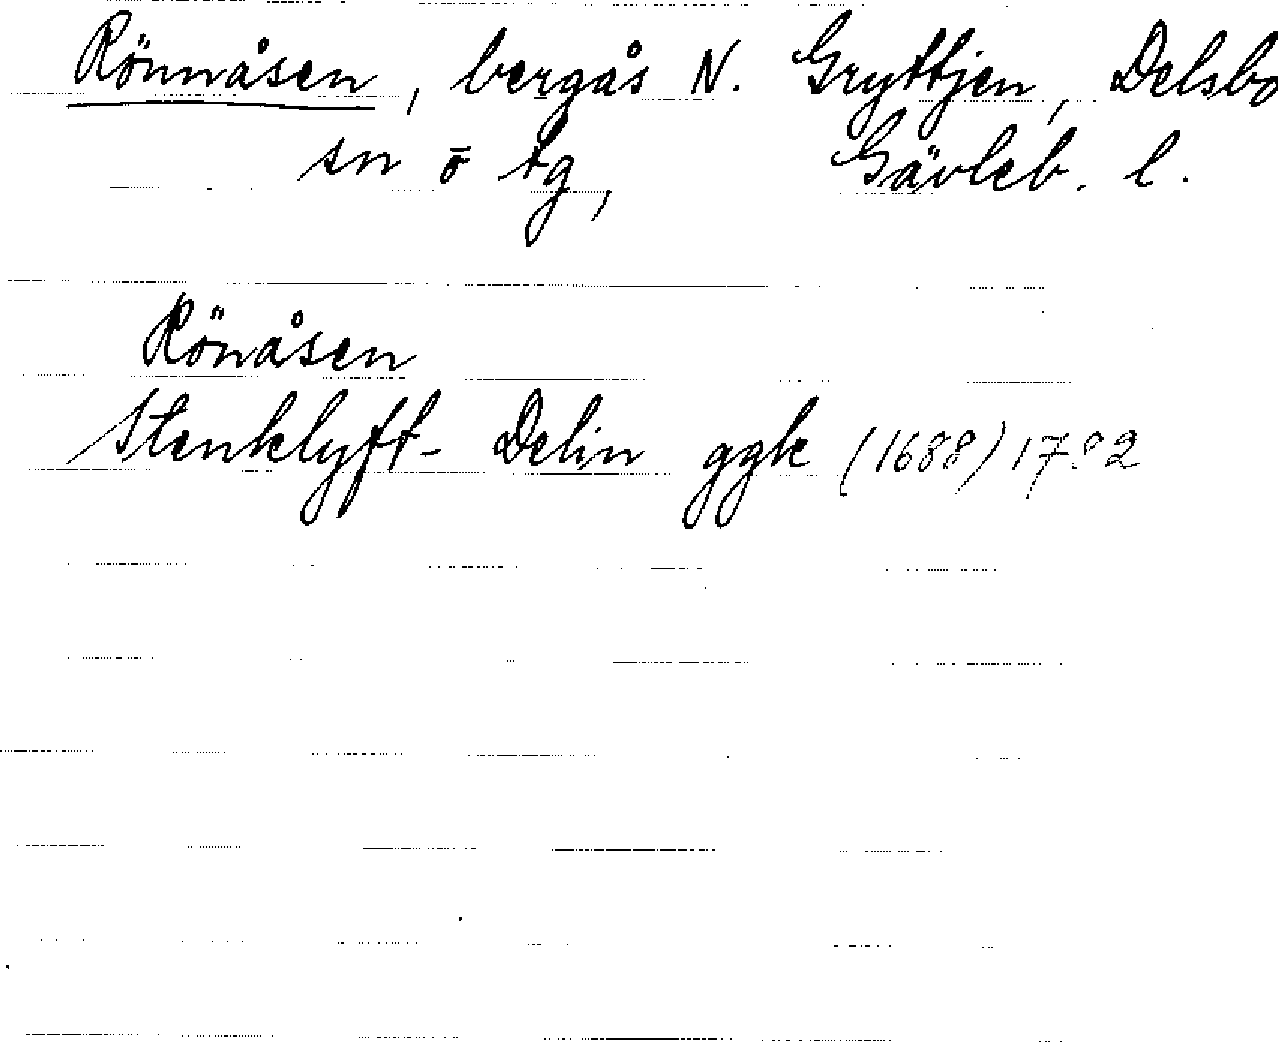 Rönnåsen, bergås N. Gryttjen, Delsbo
sn o tg, Gävleb. l.
Rönåsen
Stenklyft- Delin ggk (1688)